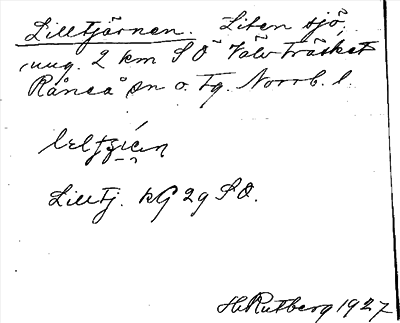 Lilltjärnen. Liten sjö,
ung. 2 km SO Valvträsket
Råneå sn o. tg. Norrb. l.
Lilltj. kG 2g SO.
H Rutberg 1927